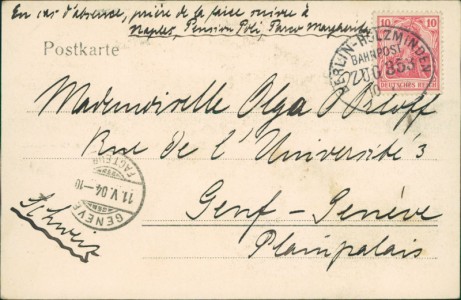 En cas d'absence, prière de la faire suivre à
Naples, Pension Poli, Parco Margherita
Postkarte
10 10
DEUTSCHES REICH
BERLIN-HOLZMINDEN
BAHNPOST
ZUG 353
Mademoiselle Olga Orloff
Rue de l'Université 3
Genf-Genève
Plainpalais
Schweiz
GENÈVE
11.V.04-10
FACTEUR